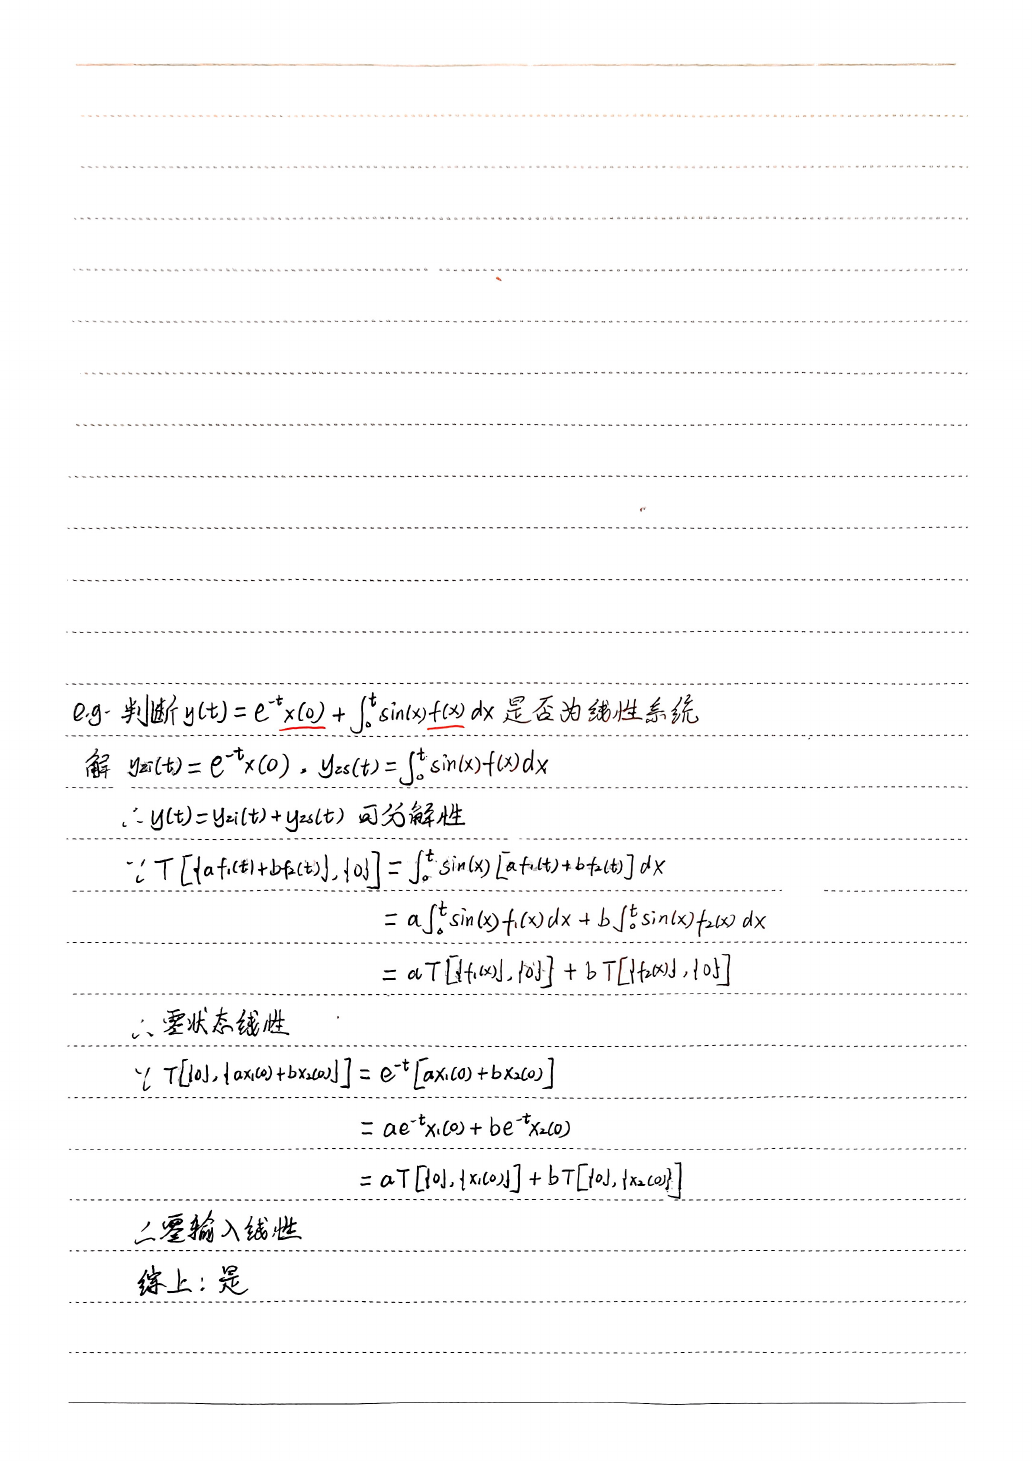 e.g. 判断 y(t) = e^{-t}x(0) + ∫₀ᵗ sin(x)f(x)dx 是否为线性系统
解 yzi(t) = e^{-t}x(0), yzs(t) = ∫₀ᵗ sin(x)f(x)dx
∴ y(t) = yzi(t) + yzs(t) 可分解性
∵ T[{af₁(t)+bf₂(t)}, {0}] = ∫₀ᵗ sin(x)[af₁(t)+bf₂(t)]dx
= a∫₀ᵗ sin(x)f₁(x)dx + b∫₀ᵗ sin(x)f₂(x)dx
= aT[{f₁(x)}, {0}] + bT[{f₂(x)}, {0}]
∴ 零状态线性
∵ T[{0}, {ax₁(0)+bx₂(0)}] = e^{-t}[ax₁(0)+bx₂(0)]
= ae^{-t}x₁(0) + be^{-t}x₂(0)
= aT[{0}, {x₁(0)}] + bT[{0}, {x₂(0)}]
∴ 零输入线性
综上: 是